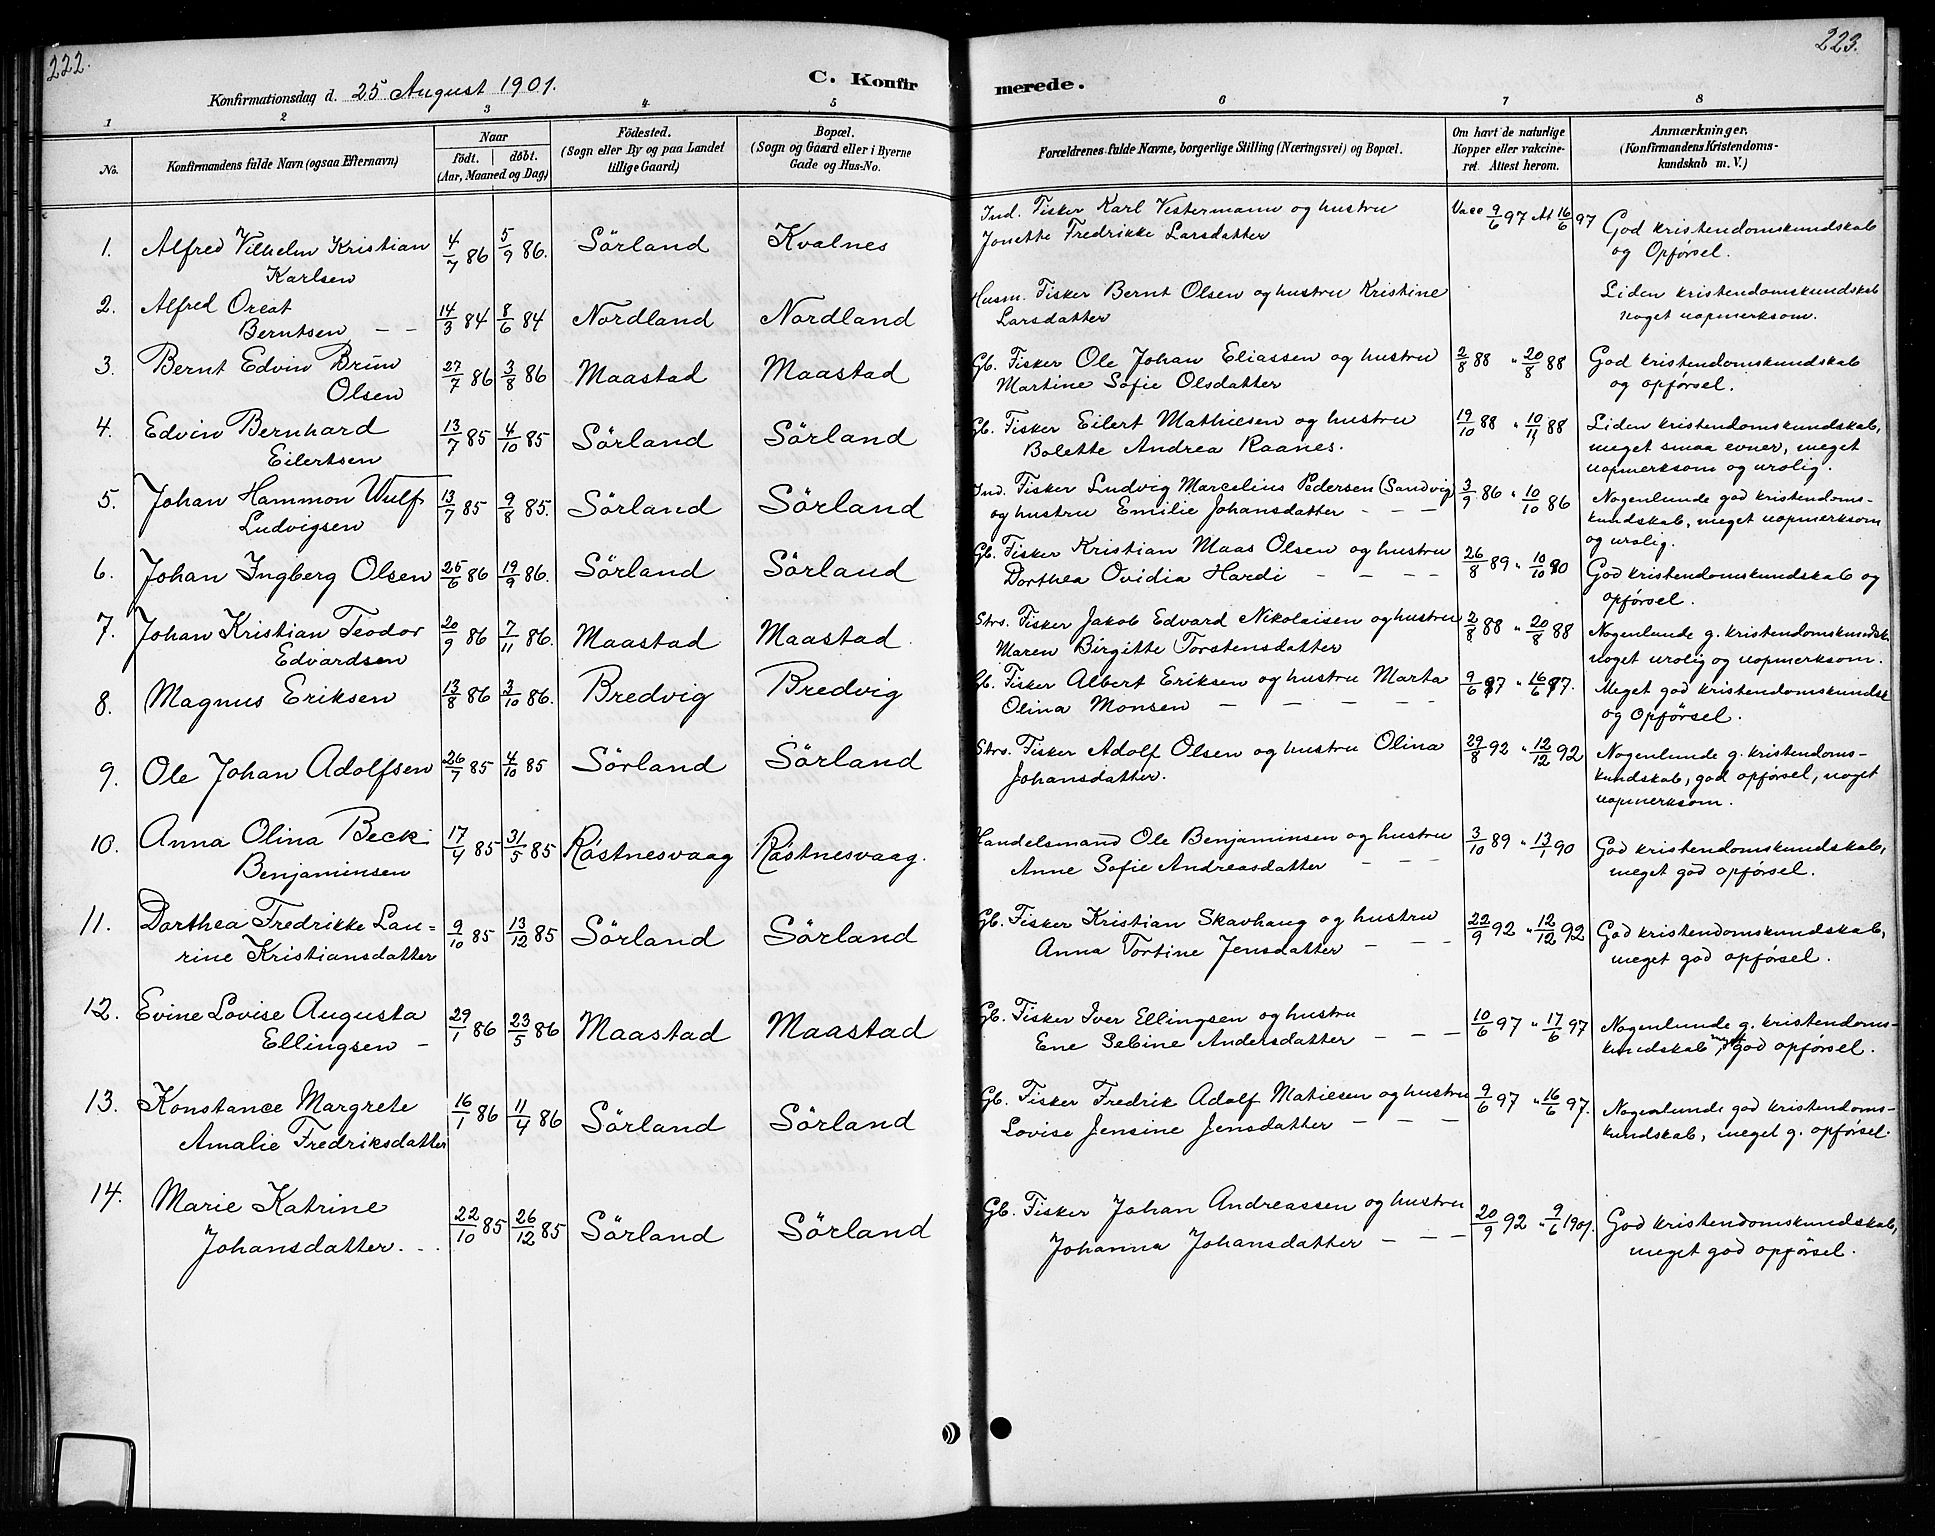 222.
223.
Konfirmationsdag d. 25 August 1901.
C. Konfir
merede.
1 2 3 4 5 6 7 8
No.
Konfirmandens fulde Navn (ogsaa Efternavn)
Naar
födt. | döbt.
(Aar, Maaned og Dag)
Födested.
(Sogn eller By og paa Landet
tillige Gaard)
Bopæl.
(Sogn og Gaard eller i Byerne
Gade og Hus-No.
Forældrenes fulde Navne, borgerlige Stilling (Næringsvei) og Bopæl.
Om havt de naturlige
Kopper eller vakcine-
ret. Attest herom.
Anmærkninger.
(Konfirmandens Kristendoms-
kundskab m. V.)
1. Alfred Vilhelm Kristian
Karlsen
4/7 86 5/9 86. Sörland Kvalnes
Ind. Fisker Karl Vestermann og hustru
Jonette Fredrikke Larsdatter
Vacc 9/6 97 At 16/6 97
God kristendomskundskab
og Opførsel.
2. Alfred Oreat
Berntsen — —
14/3 84 8/6 84 Nordland Nordland
Husm. Fisker Bernt Olsen og hustru Kristine
Larsdatter
Liden kristendomskundskab
noget uopmerksom.
3. Bernt Edvin Brun
Olsen
27/7 86 3/8 86 Maastad Maastad
Gb. Fisker Ole Johan Eliassen og hustru
Martine Sofie Olsdatter
2/8 88 " 20/8 88
God kristendomskundskab
og opførsel.
4. Edvin Bernhard
Eilertsen
13/7 85 4/10 85 Sörland Sörland
Gb. Fisker Eilert Mathiesen og hustru
Bolette Andrea Raanes.
19/10 88 " 10/11 88
Liden kristendomskundskab,
meget smaa evner, meget
uopmerksom og urolig.
5. Johan Hammon Wulf
Ludvigsen
13/7 85 9/8 85. Sörland Sörland
Ind. Fisker Ludvig Marcelius Pedersen (Sandvig)
og hustru Emilie Johansdatter — — —
3/9 86 " 10/10 86
Nogenlunde god kristendoms-
kundskab, meget uopmerksom
og urolig.
6. Johan Ingberg Olsen
25/6 86 19/9 86. Sörland Sörland
Gb. Fisker Kristian Maas Olsen og hustru
Dorthea Ovidia Hardi — — — —
26/8 89 " 10/10 90
God kristendomskundskab og
opførsel.
7. Johan Kristian Teodor
Edvardsen
20/9 86 7/11 86. Maastad Maastad
Strs. Fisker Jakob Edvard Nikolaisen og hustru
Maren Birgitte Torstensdatter
2/8 88 " 20/8 88
Nogenlunde g. kristendomskundsk.
noget urolig og uopmerksom.
8. Magnus Eriksen
13/8 86 3/10 86. Bredvig Bredvig
Gb. Fisker Albert Eriksen og hustru Marta
Olina Monsen — — — — —
9/6 97 " 16/6 97.
Meget god kristendomskundsk
og Opførsel.
9. Ole Johan Adolfsen
26/7 85 4/10 85 Sörland Sörland
Strs. Fisker Adolf Olsen og hustru Olina
Johansdatter.
29/8 92 " 12/12 92
Nogenlunde g. kristendoms-
kundskab, god opførsel, noget
uopmerksom.
10. Anna Olina Beck
Benjaminsen
17/4 85 31/5 85 Röstnesvaag Röstnesvaag.
Handelsmand Ole Benjaminsen og hustru
Anne Sofie Andreasdatter — — —
3/10 89 " 13/1 90
God kristendomskundskab,
meget god opførsel.
11. Dorthea Fredrikke Lau=
rine Kristiansdatter
9/10 85 13/12 85 Sörland Sörland
Gb. Fisker Kristian Skavhaug og hustru
Anna Tortine Jensdatter — — —
22/9 92 " 12/12 92
God kristendomskundskab,
meget god opførsel.
12. Evine Lovise Augusta
Ellingsen —
29/1 86 23/5 86 Maastad Maastad
Gb. Fisker Iver Ellingsen og hustru
Ene Sebine Andersdatter — — —
10/6 97 " 17/6 97
Nogenlunde g. kristendoms-
kundskab, meget god opførsel.
13. Konstance Margrete
Amalie Fredriksdatter
16/1 86 11/4 86 Sörland Sörland
Gb. Fisker Fredrik Adolf Matiesen og hustru
Lovise Jensine Jensdatter — — —
9/6 97 " 16/6 97.
Nogenlunde god kristendoms-
kundskab, meget g. opførsel.
14. Marie Katrine
Johansdatter. - -
22/10 85 26/12 85 Sörland Sörland
Gb. Fisker Johan Andreassen og hustru
Johanna Johansdatter — — —
20/9 92 " 9/6 1901.
God kristendomskundskab,
meget god opførsel.